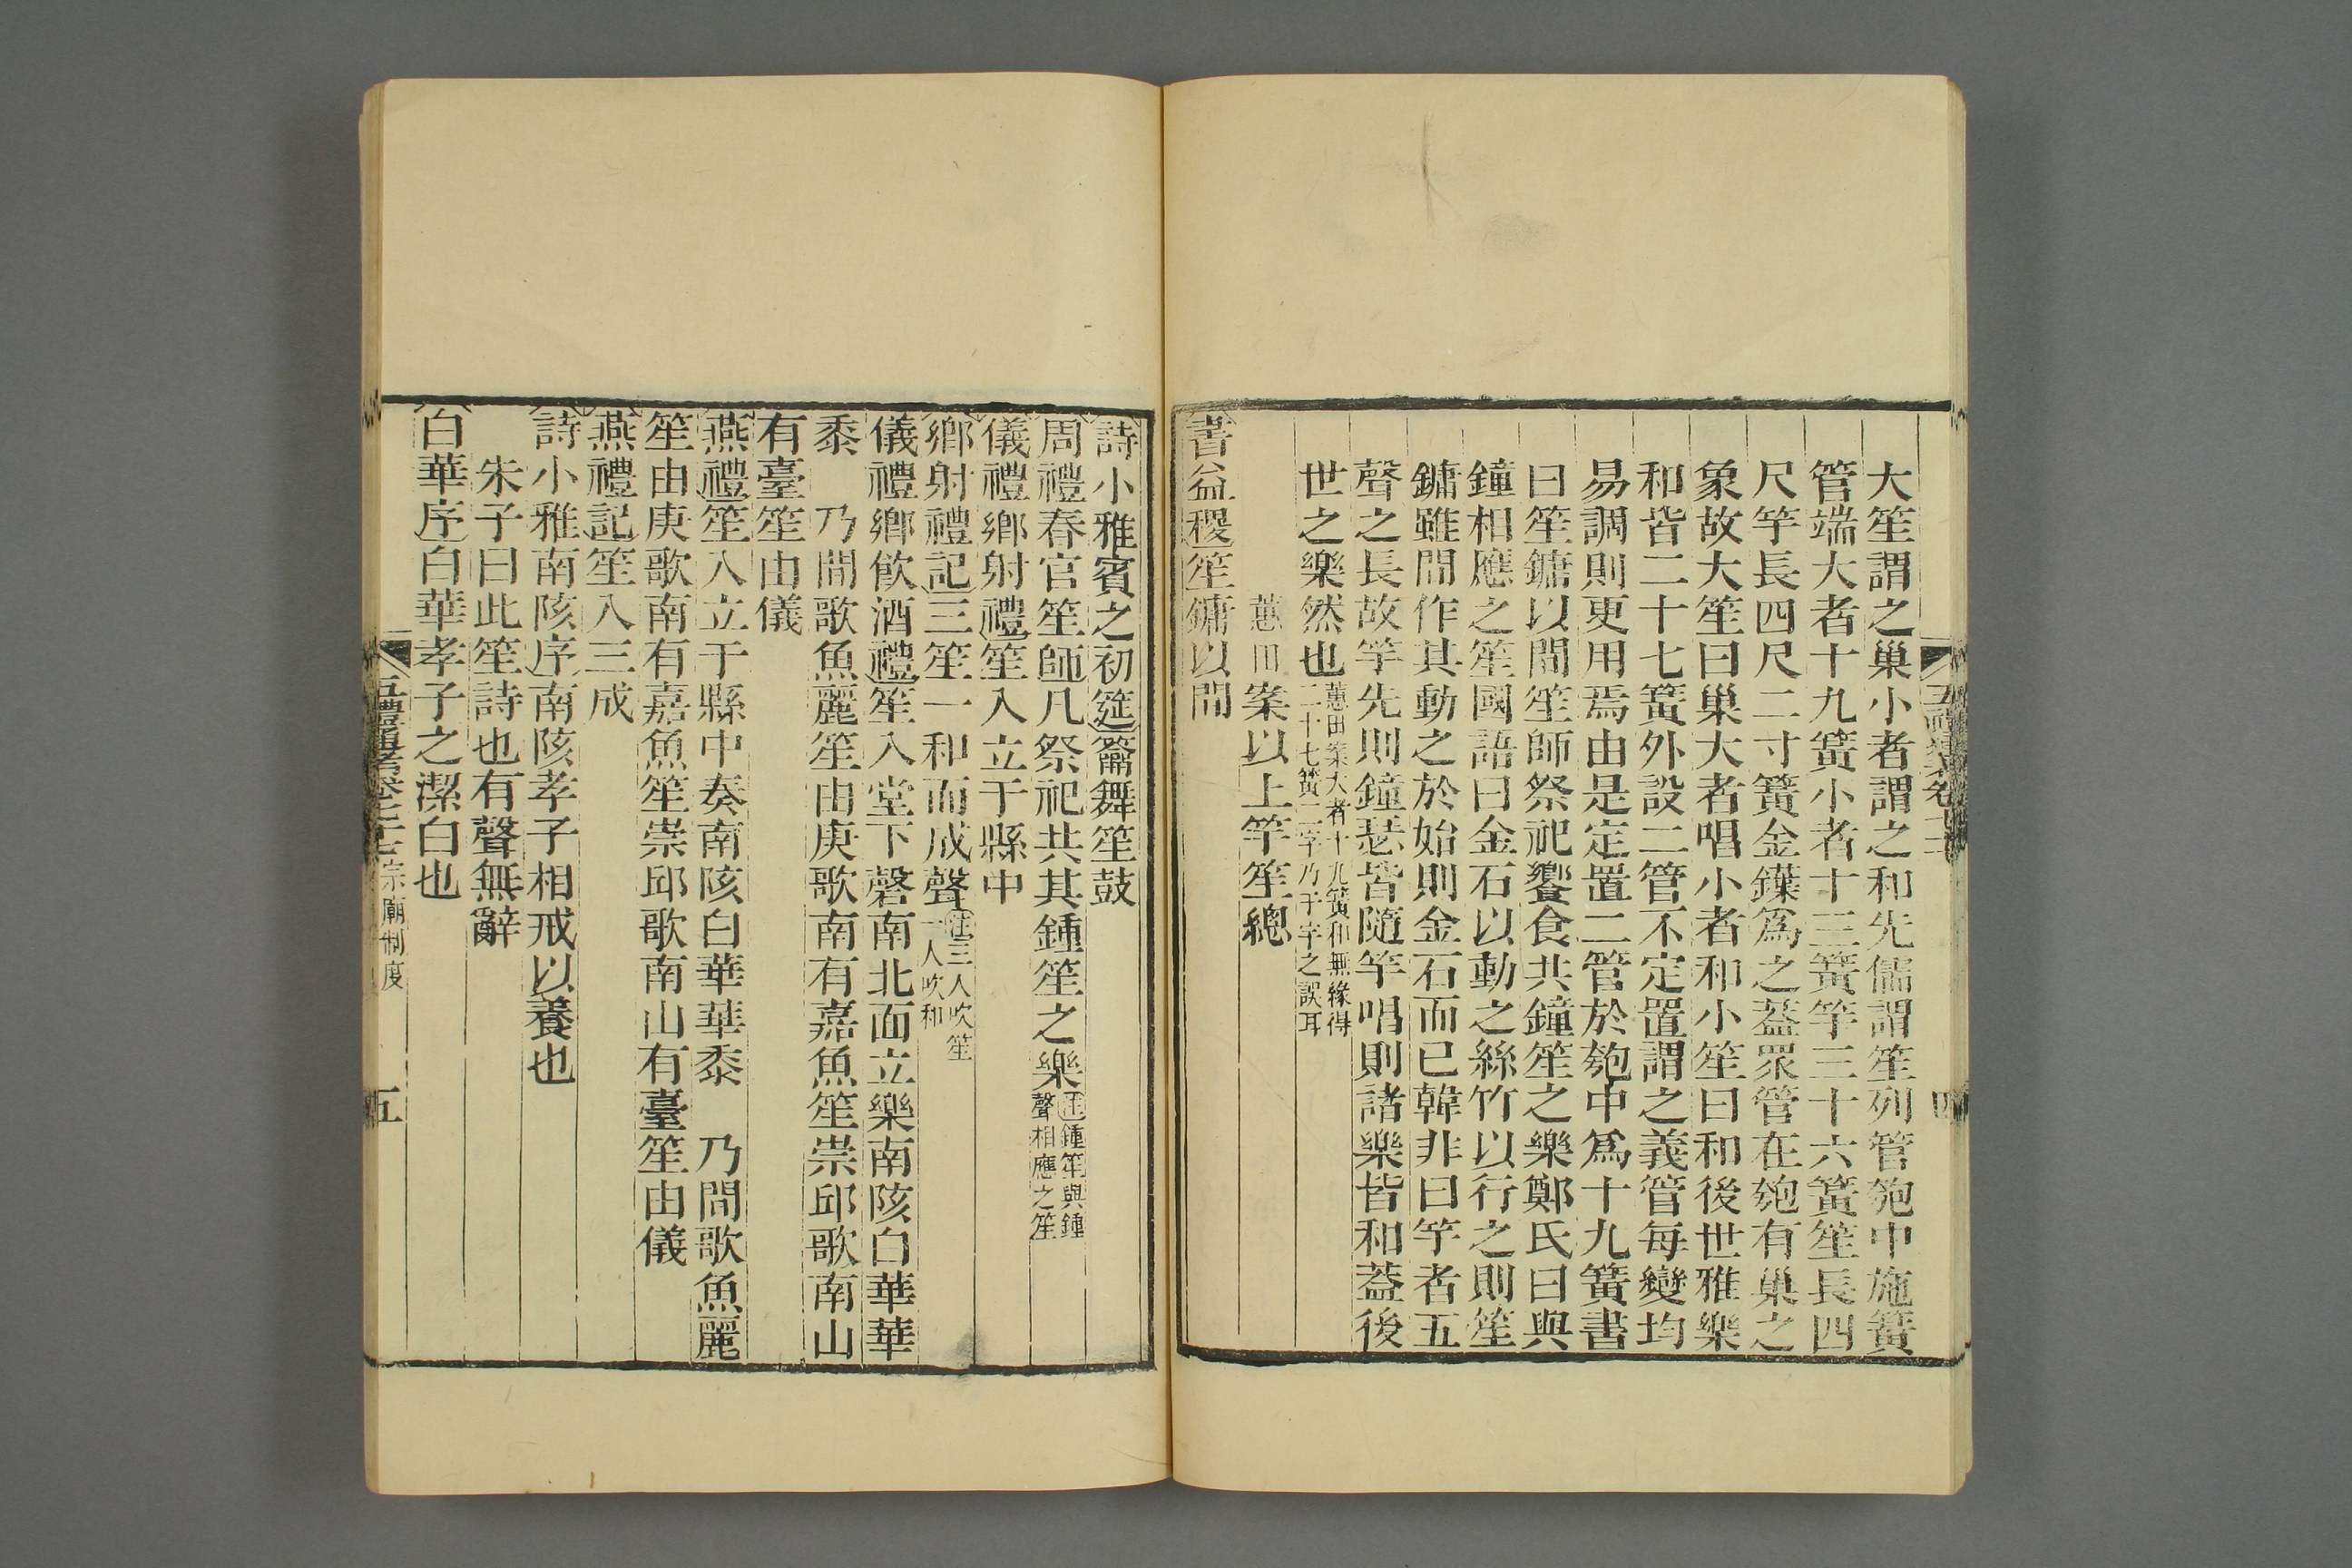 大笙謂之巢小者謂之和先儒謂笙列管匏中施簧
管端大者十九簧小者十三簧竽三十六簧笙長四
尺竽長四尺二寸簧金鍱爲之葢眾管在匏有巢之
象故大笙曰巢大者唱小者和小笙曰和後世雅樂
和皆二十七簧外設二管不定置謂之義管每變均
易調則更用焉由是定置二管於匏中爲十九簧書
曰笙鏞以間笙師祭祀饗食共鐘笙之樂鄭氏曰與
鐘相應之笙國語曰金石以動之絲竹以行之則笙
鏞雖間作其動之於始則金石而已韓非曰竽者五
聲之長故竽先則鐘瑟皆隨竽唱則諸樂皆和葢後
世之樂然也蕙田案大者十九簧和無緣得
二十七簧二字乃于字之誤耳
蕙田案以上竽笙總
書益稷笙鏞以間
詩小雅賓之初筵籥舞笙鼓
周禮春官笙師凡祭祀共其鍾笙之樂注鍾笙與鍾
聲相應之笙
儀禮鄉射禮笙入立于縣中
鄉射禮記三笙一和而成聲注三人吹笙
一人吹和
儀禮鄉飮酒禮笙入堂下磬南北面立樂南陔白華華
黍　乃間歌魚麗笙由庚歌南有嘉魚笙崇邱歌南山
有臺笙由儀
燕禮笙入立于縣中奏南陔白華華黍　乃間歌魚麗
笙由庚歌南有嘉魚笙崇邱歌南山有臺笙由儀
燕禮記笙入三成
詩小雅南陔序南陔孝子相戒以養也
朱子曰此笙詩也有聲無辭
白華序白華孝子之潔白也
五禮通考卷七十三宗廟制度
五